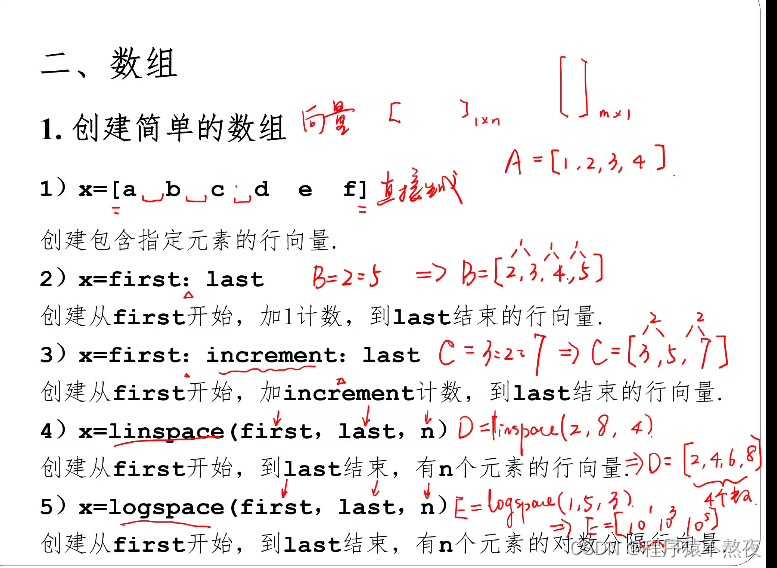 二、数组
1. 创建简单的数组 向量 [ ]1×n [ ]m×1
A=[1,2,3,4]
1）x=[a b c d e f] 直接生成
创建包含指定元素的行向量.
2）x=first：last B=2:5 => B=[2,3,4,5]
1 1 1
创建从first开始，加1计数，到last结束的行向量.
3）x=first：increment：last C=3:2:7 => C=[3,5,7]
2 2
创建从first开始，加increment计数，到last结束的行向量.
4）x=linspace(first，last，n) D=linspace(2,8,4)
创建从first开始，到last结束，有n个元素的行向量. => D=[2,4,6,8]
4个数
5）x=logspace(first，last，n) E=logspace(1,5,3)
=> E=[10¹ 10³ 10⁵]
创建从first开始，到last结束，有n个元素的对数分隔行向量
CSDN @程序猿不熬夜